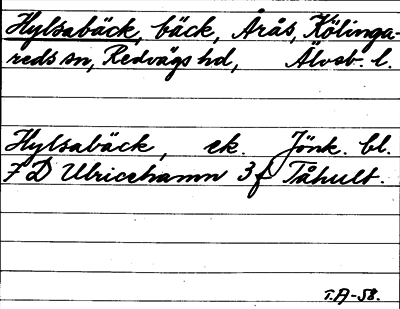 Hylsabäck, bäck, Årås, Kölinga-
reds sn, Redvägs hd, Älvsb. l.
Hylsabäck, ek. Jönk. bl.
7 D Ulricehamn 3 f Tåhult.
T.A-58.